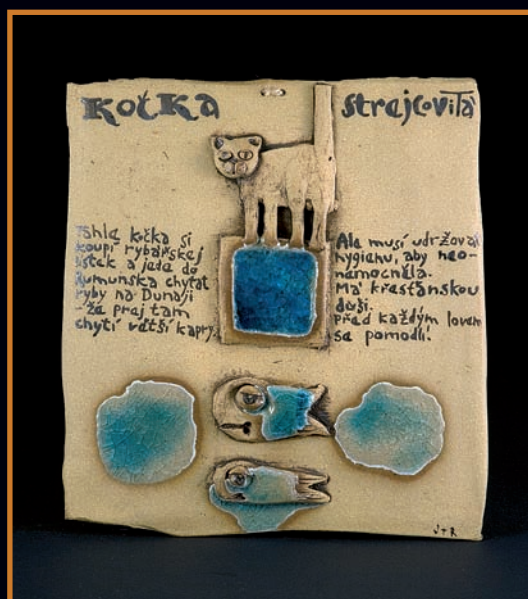 Kočka strejcovitá
Tahle kočka si
koupí rybářskej
lístek a jede do
Rumunska chytat
ryby na Dunaji
- že prej tam
chytí větší kapry.
Ale musí udržovat
hygienu, aby neo-
nemocněla.
Má křesťanskou
duši.
Před každým lovem
se pomodlí.
J+R